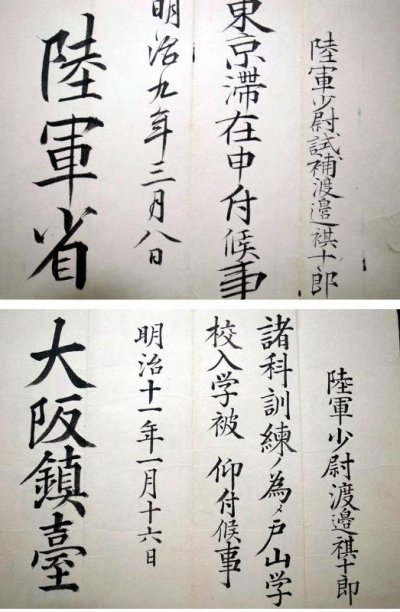 陸軍少尉試補渡邉祺十郎
東京滞在申付候事
明治九年三月八日
陸軍省
陸軍少尉渡邉祺十郎
諸科訓練ノ為メ戸山学
校入学被 仰付候事
明治十一年一月十六日
大阪鎮臺